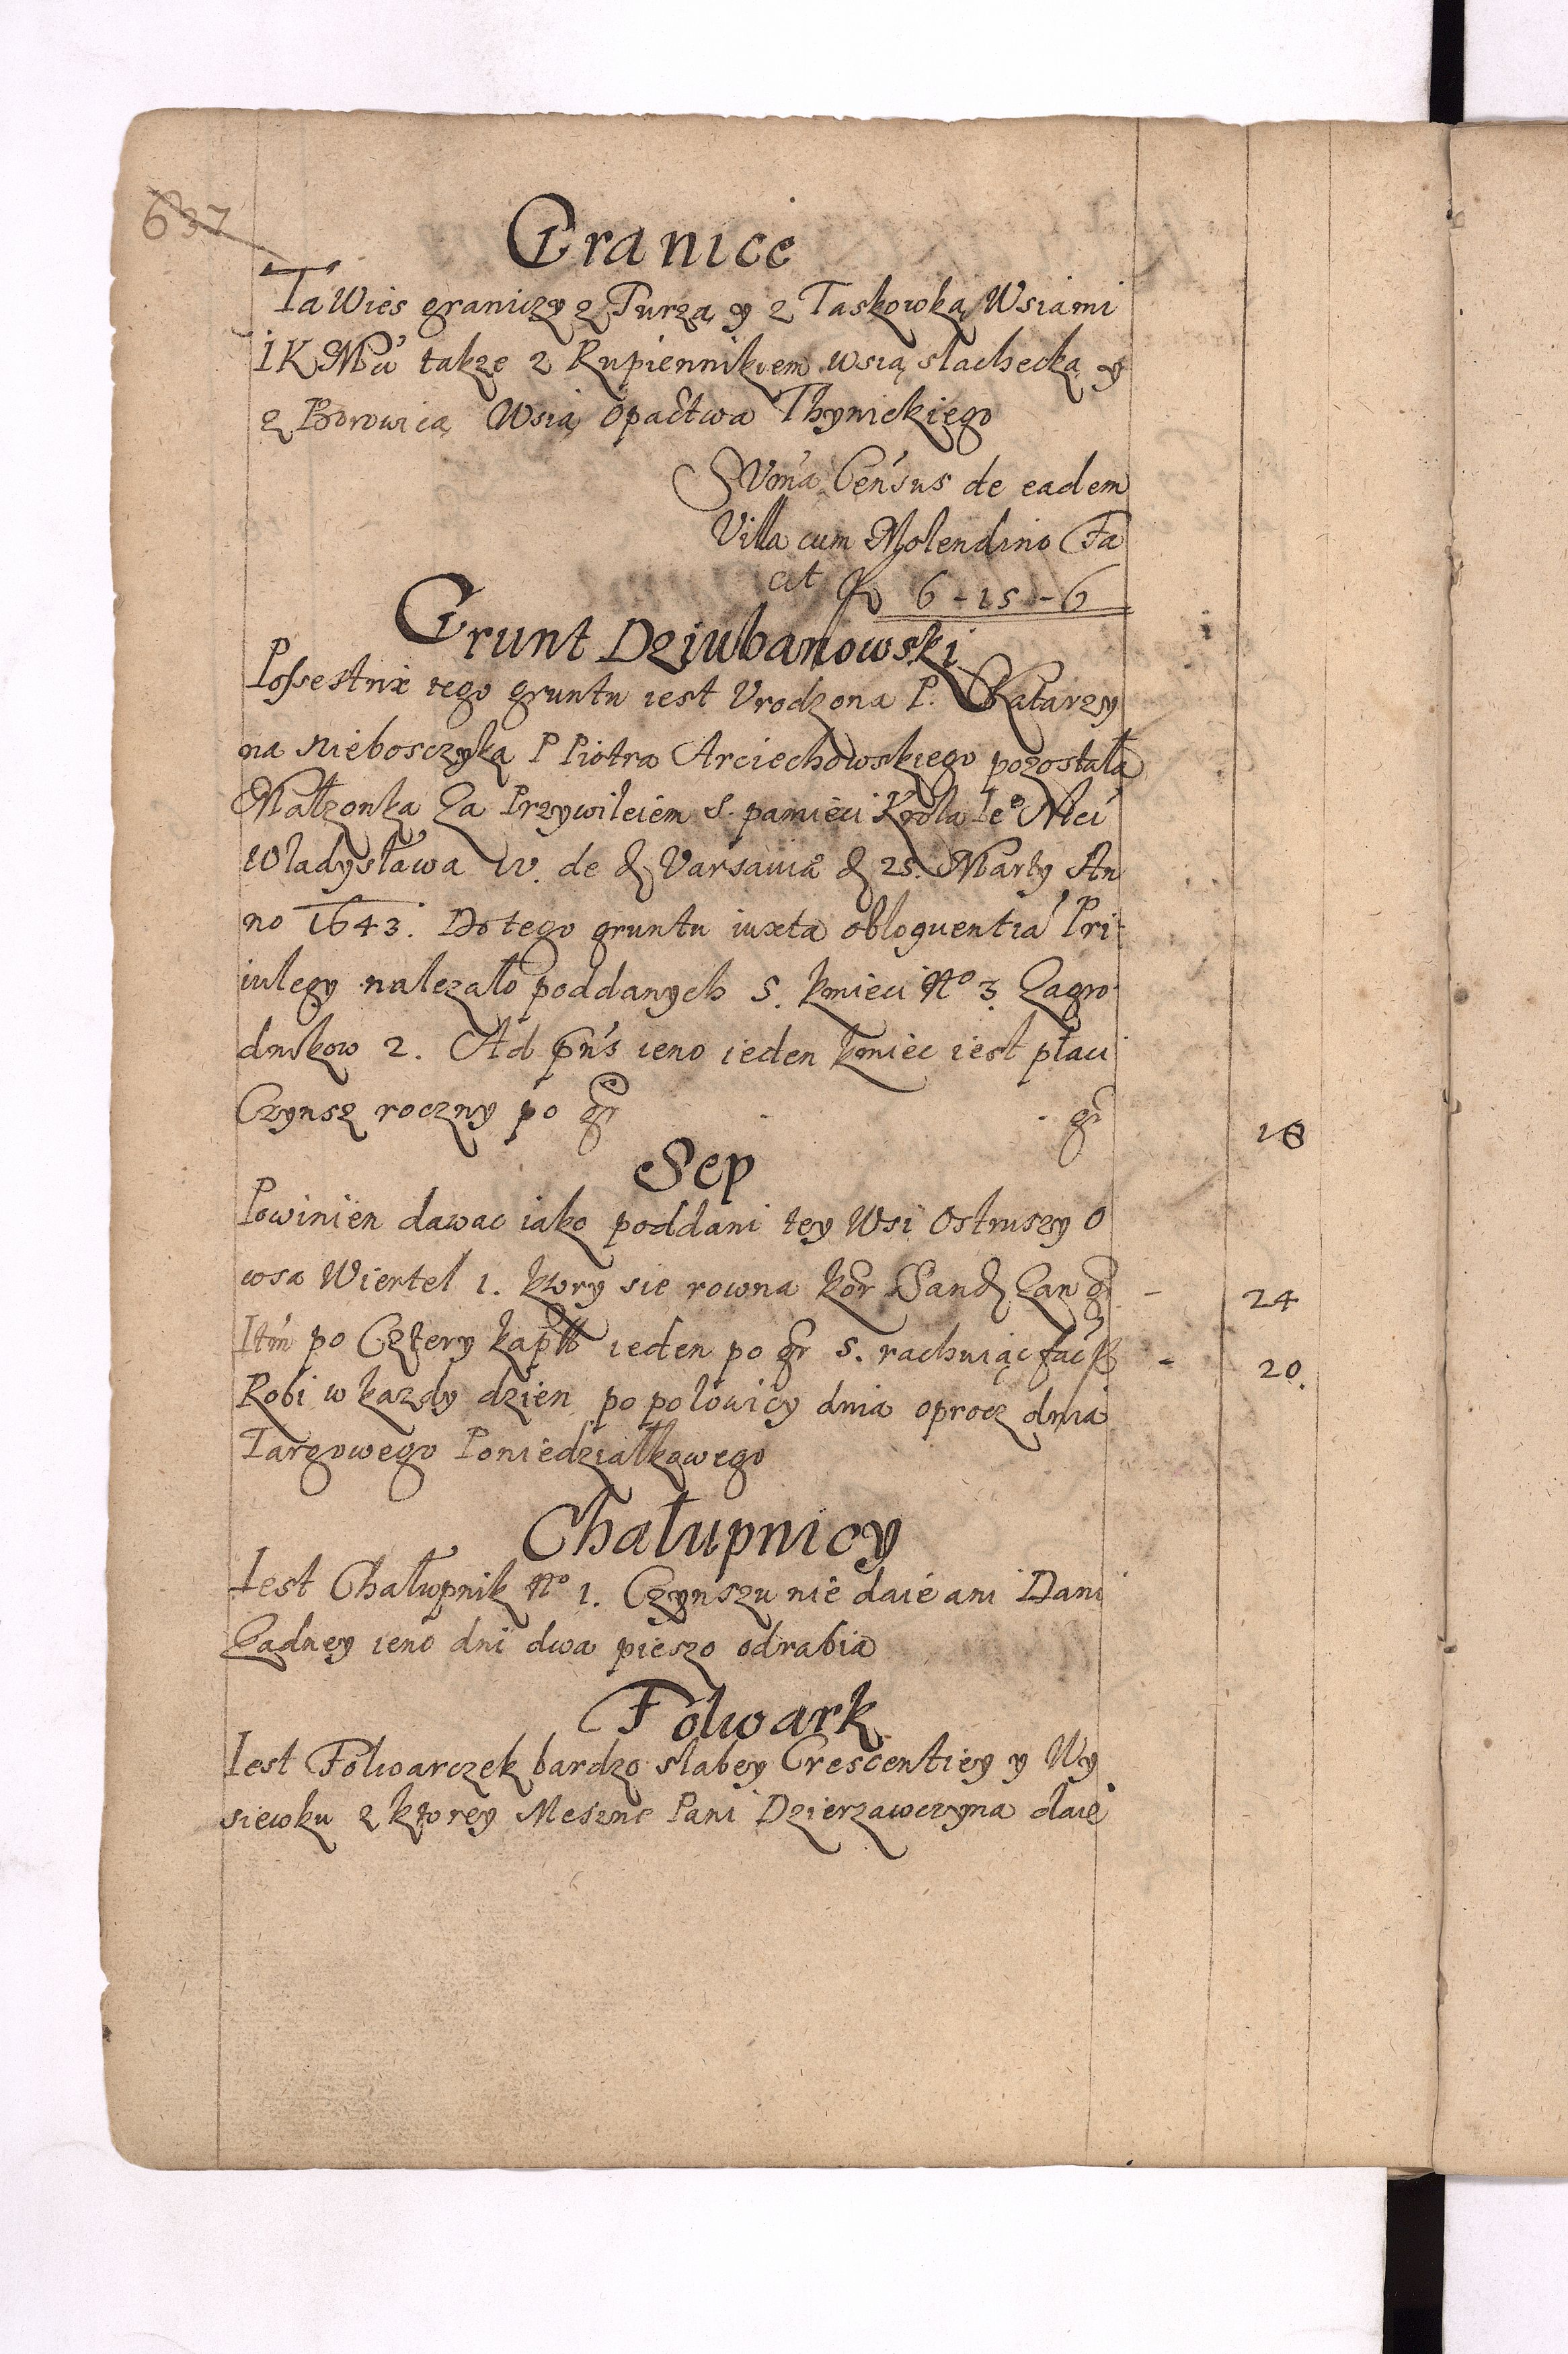 637
Granice
Ta Wies graniczy z Turzą y z Taskowką Wsiami
IK Mći takze z Rupiennikiem wsią slachecką y
z Borowicą Wsią Opactwa Thynickiego
Suma Census de eadem
Villa cum Molendino Fa
cit 6 - 15 - 6
Grunt Dziubanowski
Possestrix tego gruntu iest Vrodzona P. Katarzy
na Nieboszczyka P Piotra Arciechowskiego pozostała
Małzonka Za Przywileiem S. pamieci Krola Ieo Mci
Władysława IV. de d Varsaviæ d 25. Marty An
no 1643. Do tego gruntu iuxta obloquentia Pri
iulegy nalezało poddanych 5. kmieci No 3 Zagro
dnikow 2. Ad pns ieno ieden kmiec iest płaci
Czynsz roczny po gr - - gr 18
Sep
Powinien dawac iako poddani tey Wsi Ostruszy O
wsa Wiertel 1. ktory sie rowna kor Sand Zan gr - 24
Itm po Cztery kapł ieden po gr 5. rachuiąc fac - 20.
Robi w kazdy dzien po połowicy dnia oprocz dnia
Targowego Poniedziałkowego
Chałupnicy
Iest Chałupnik No 1. Czynszu nie daie ani Dani
Zadney ieno dni dwa pieszo odrabia
Folwark
Iest Folwarczek bardzo slabey Crescentiey y Wy
siewku z ktorey Meszne Pani Dzierzawczyna daie